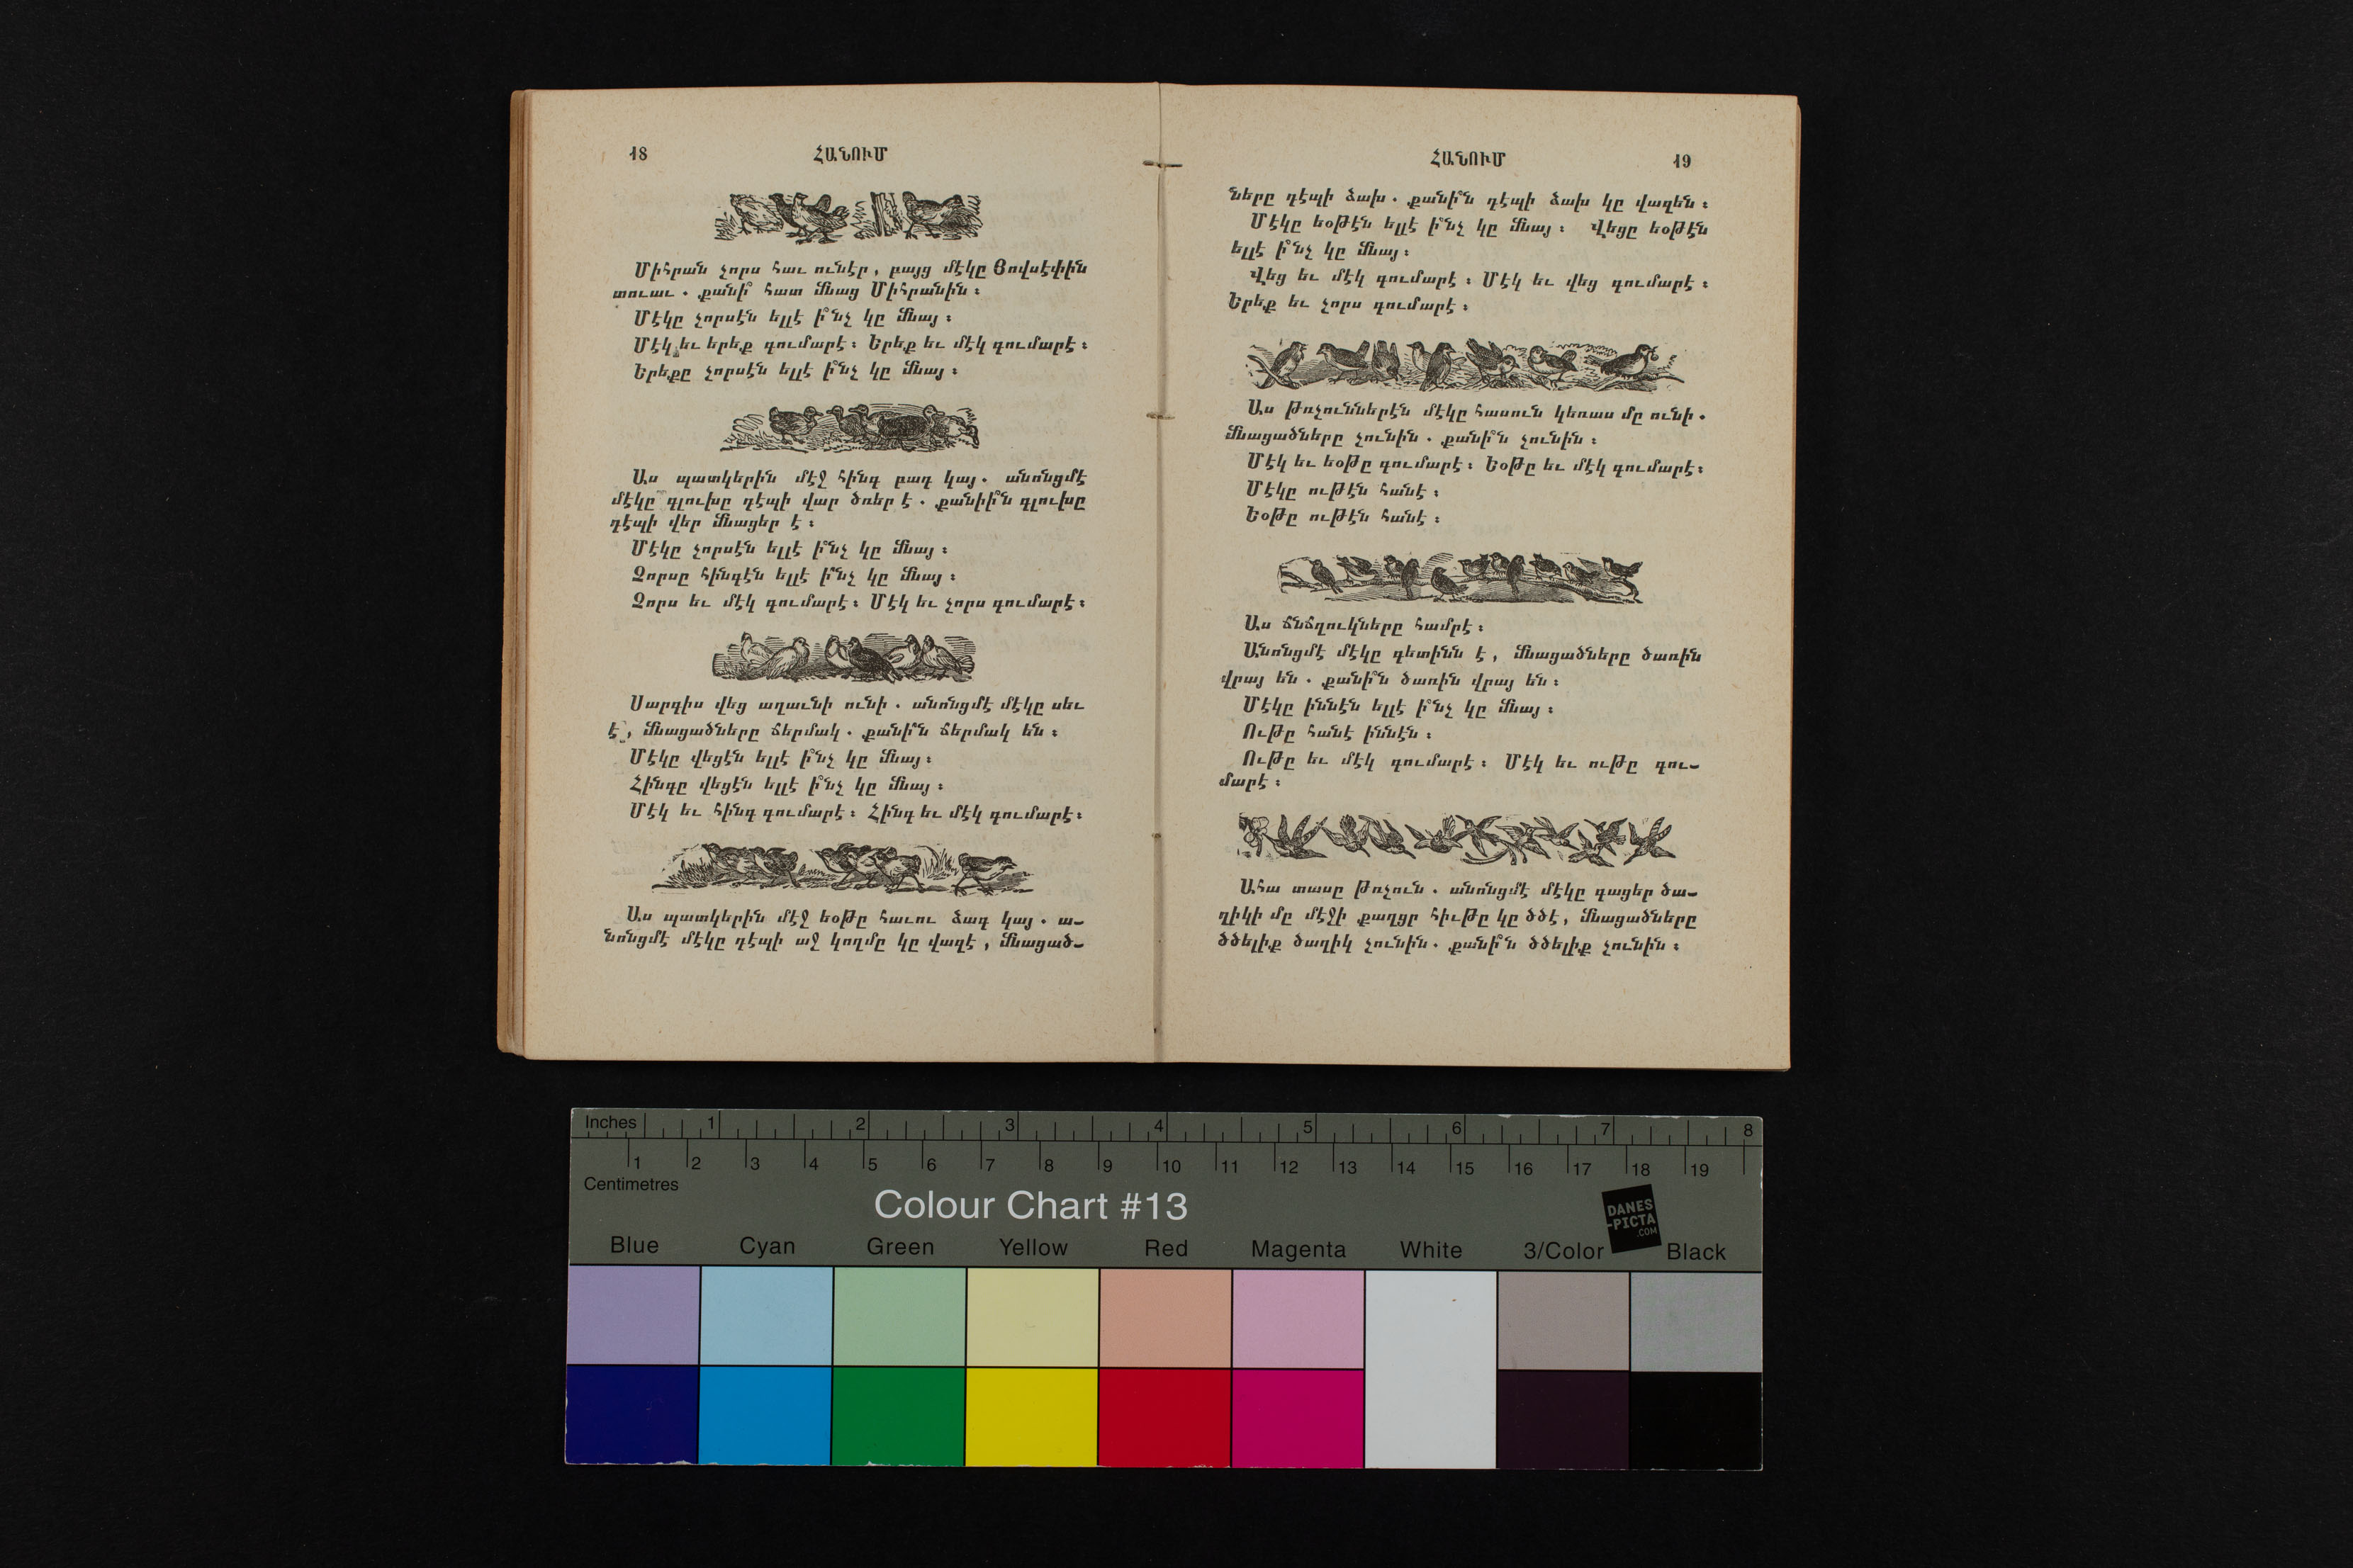 18 ՀԱՆՈՒՄ
Միհրան չորս հաւ ունէր, բայց մէկը Յովսէփին
տուաւ. քանի՞ հատ մնաց Միհրանին։
Մէկը չորսէն ելլէ ի՞նչ կը մնայ։
Մէկ եւ երեք գումարէ։ Երեք եւ մէկ գումարէ։
Երեքը չորսէն ելլէ ի՞նչ կը մնայ։
Աս պատկերին մէջ հինգ բադ կայ. անոնցմէ
մէկը գլուխը դէպի վար ծռեր է. քանիի՞ն գլուխը
դէպի վեր մնացեր է։
Մէկը չորսէն ելլէ ի՞նչ կը մնայ։
Չորսը հինգէն ելլէ ի՞նչ կը մնայ։
Չորս եւ մէկ գումարէ։ Մէկ եւ չորս գումարէ։
Սարգիս վեց աղաւնի ունի. անոնցմէ մէկը սեւ
է, մնացածները ճերմակ. քանի՞ն ճերմակ են։
Մէկը վեցէն ելլէ ի՞նչ կը մնայ։
Հինգը վեցէն ելլէ ի՞նչ կը մնայ։
Մէկ եւ հինգ գումարէ։ Հինգ եւ մէկ գումարէ։
Աս պատկերին մէջ եօթը հաւու ձագ կայ. ա-
նոնցմէ մէկը դէպի աջ կողմը կը վազէ, մնացած-
ՀԱՆՈՒՄ 19
ները դէպի ձախ. քանի՞ն դէպի ձախ կը վազեն։
Մէկը եօթէն ելլէ ի՞նչ կը մնայ։ Վեցը եօթէն
ելլէ ի՞նչ կը մնայ։
Վեց եւ մէկ գումարէ։ Մէկ եւ վեց գումարէ։
Երեք եւ չորս գումարէ։
Աս թռչուններէն մէկը հասուն կեռաս մը ունի.
մնացածները չունին. քանի՞ն չունին։
Մէկ եւ եօթը գումարէ։ Եօթը եւ մէկ գումարէ։
Մէկը ութէն հանէ։
Եօթը ութէն հանէ։
Աս ճնճղուկները համրէ։
Անոնցմէ մէկը գետինն է, մնացածները ծառին
վրայ են. քանի՞ն ծառին վրայ են։
Մէկը իննէն ելլէ ի՞նչ կը մնայ։
Ութը հանէ իննէն։
Ութը եւ մէկ գումարէ։ Մէկ եւ ութը գու-
մարէ։
Ահա տասը թռչուն. անոնցմէ մէկը գացեր ծա-
ղիկի մը մէջի քաղցր հիւթը կը ծծէ, մնացածները
ծծելիք ծաղիկ չունին. քանի՞ն ծծելիք չունին։
Inches 1 2 3 4 5 6 7 8
1 2 3 4 5 6 7 8 9 10 11 12 13 14 15 16 17 18 19
Centimetres
Colour Chart #13
DANES
-PICTA
.COM
Blue Cyan Green Yellow Red Magenta White 3/Color Black